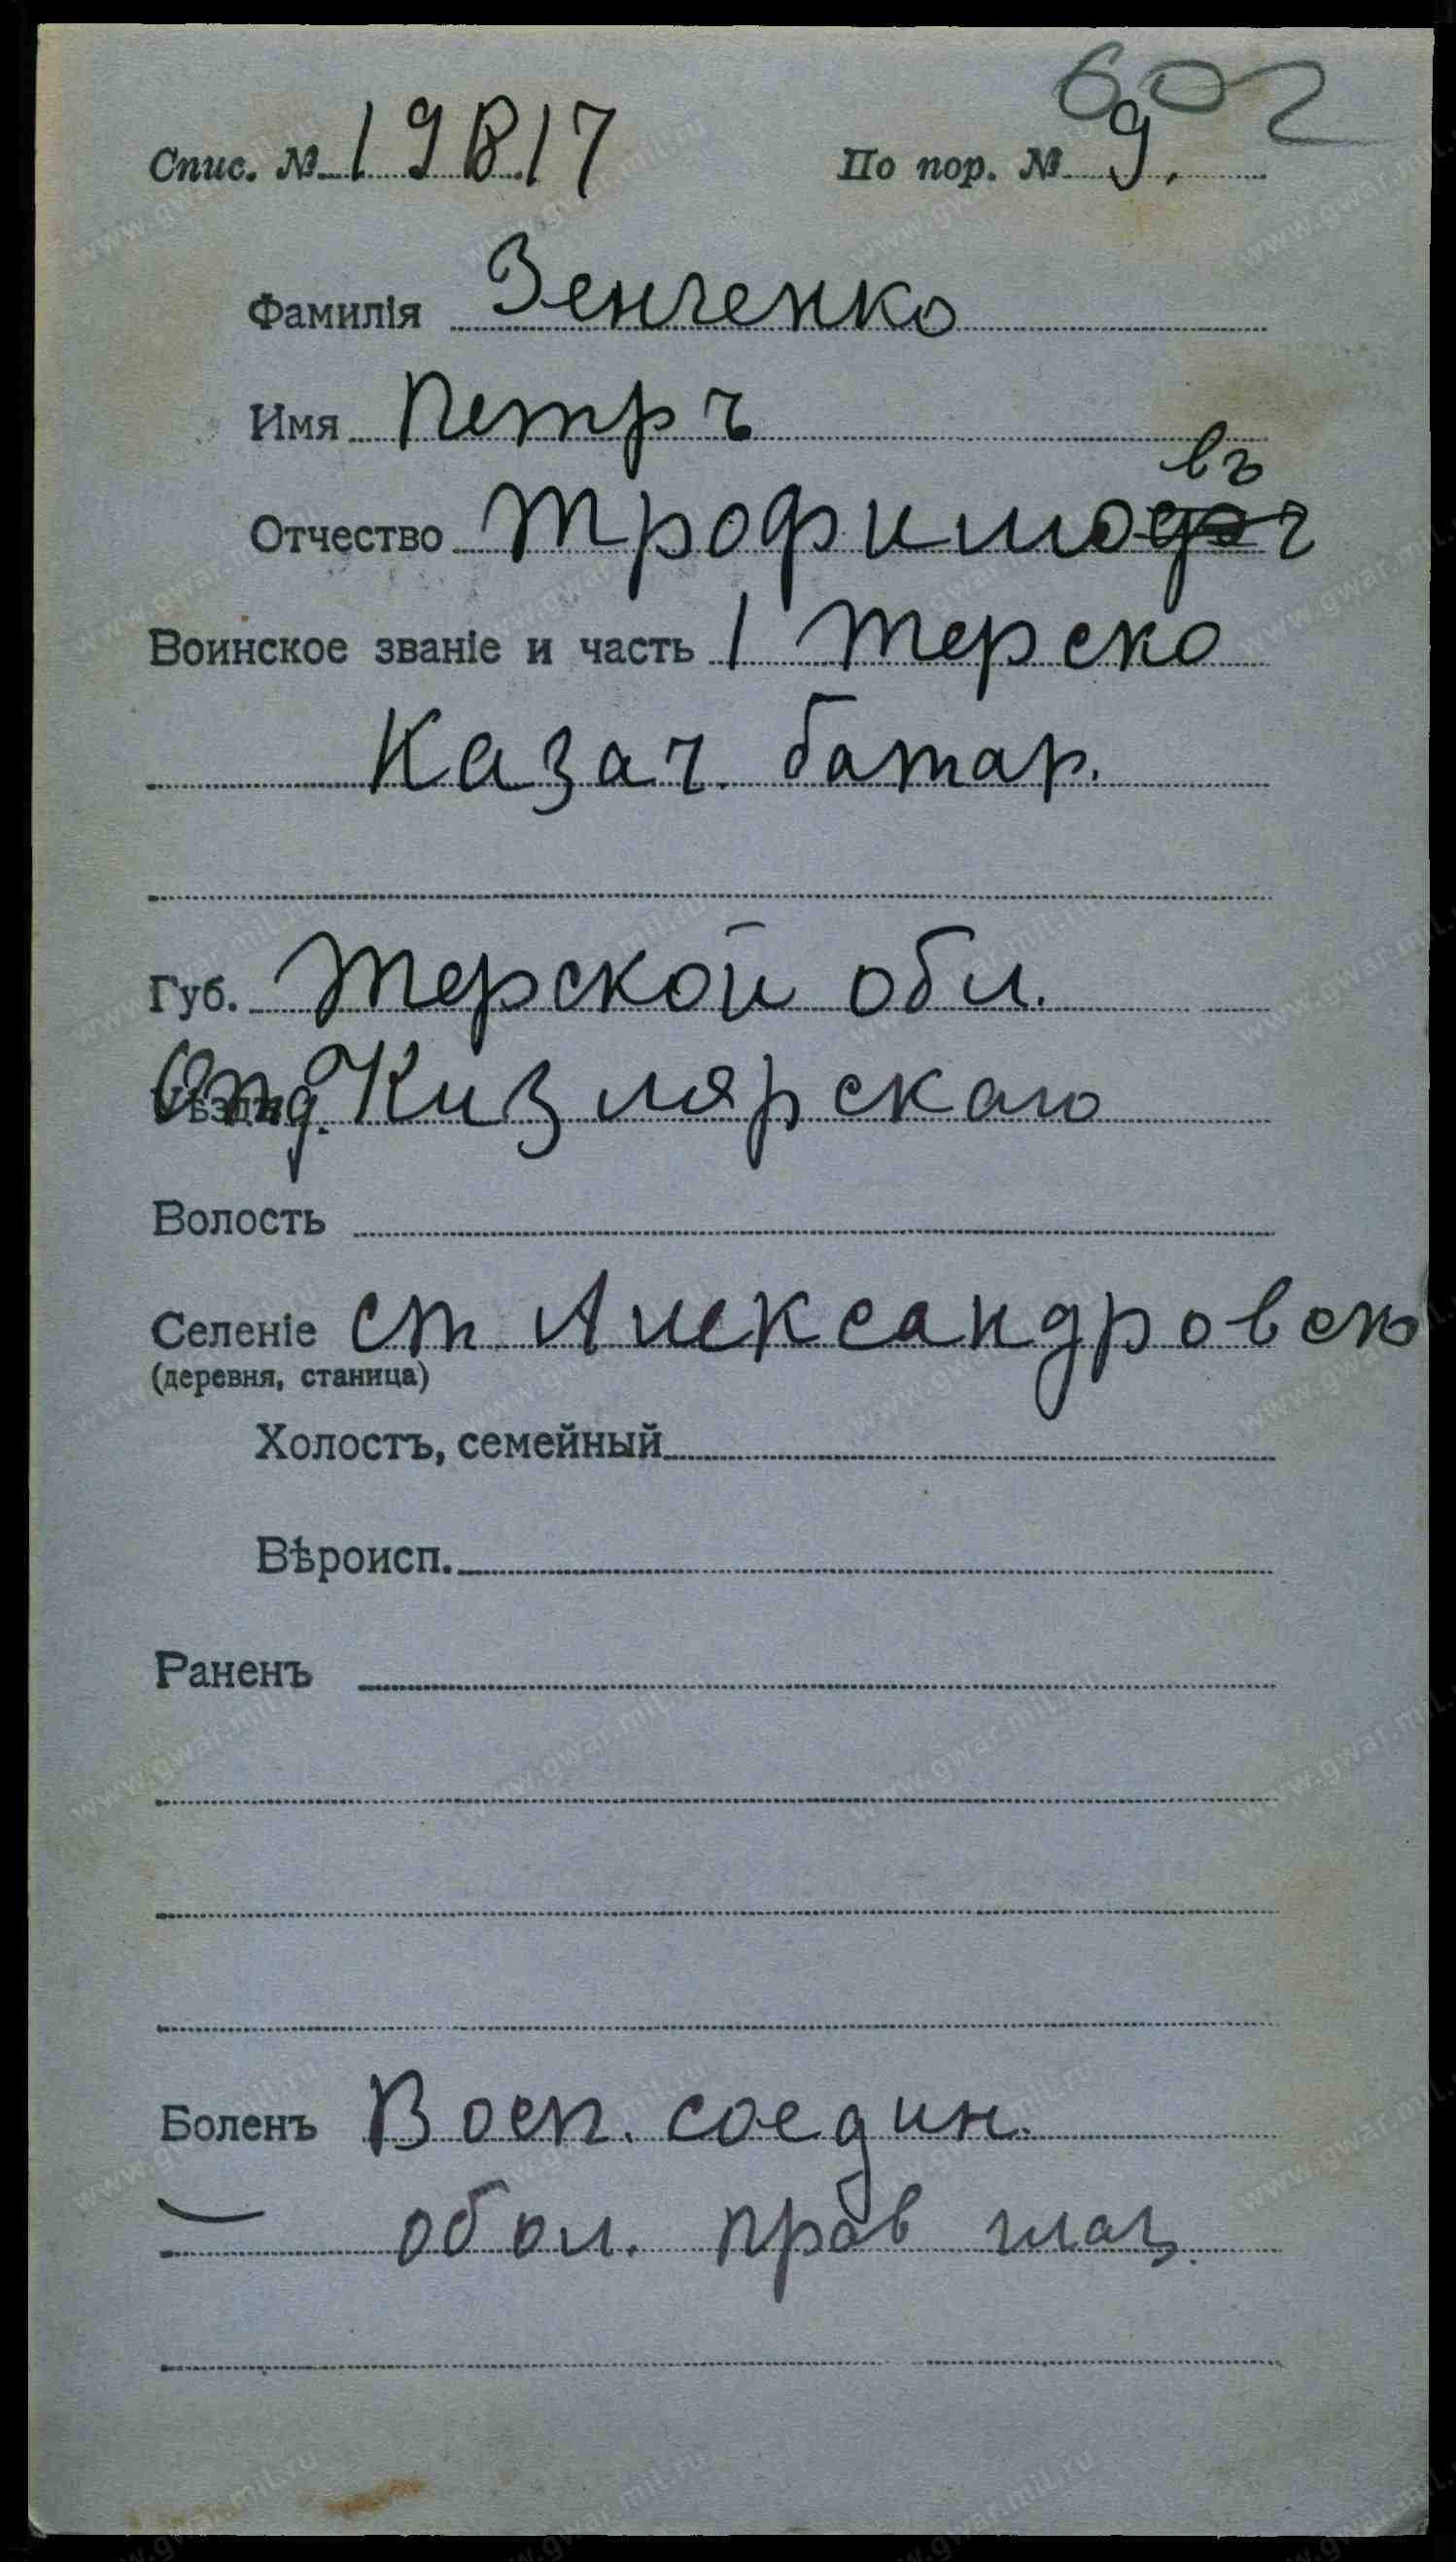 602
Спис. № 19817 По пор. № 9.
Фамилія Зенченко
Имя Петръ
въ
Отчество Трофимо ч
Воинское званіе и часть 1 Терско
Казач. батар.
Губ. Терской обл.
Уѣздъ Отд. Кизлярскаго
Волость
Селеніе ст. Александровск
(деревня, станица)
Холостъ, семейный
Вѣроисп.
Раненъ
Боленъ Восп. соедин.
обол. прав глаз.